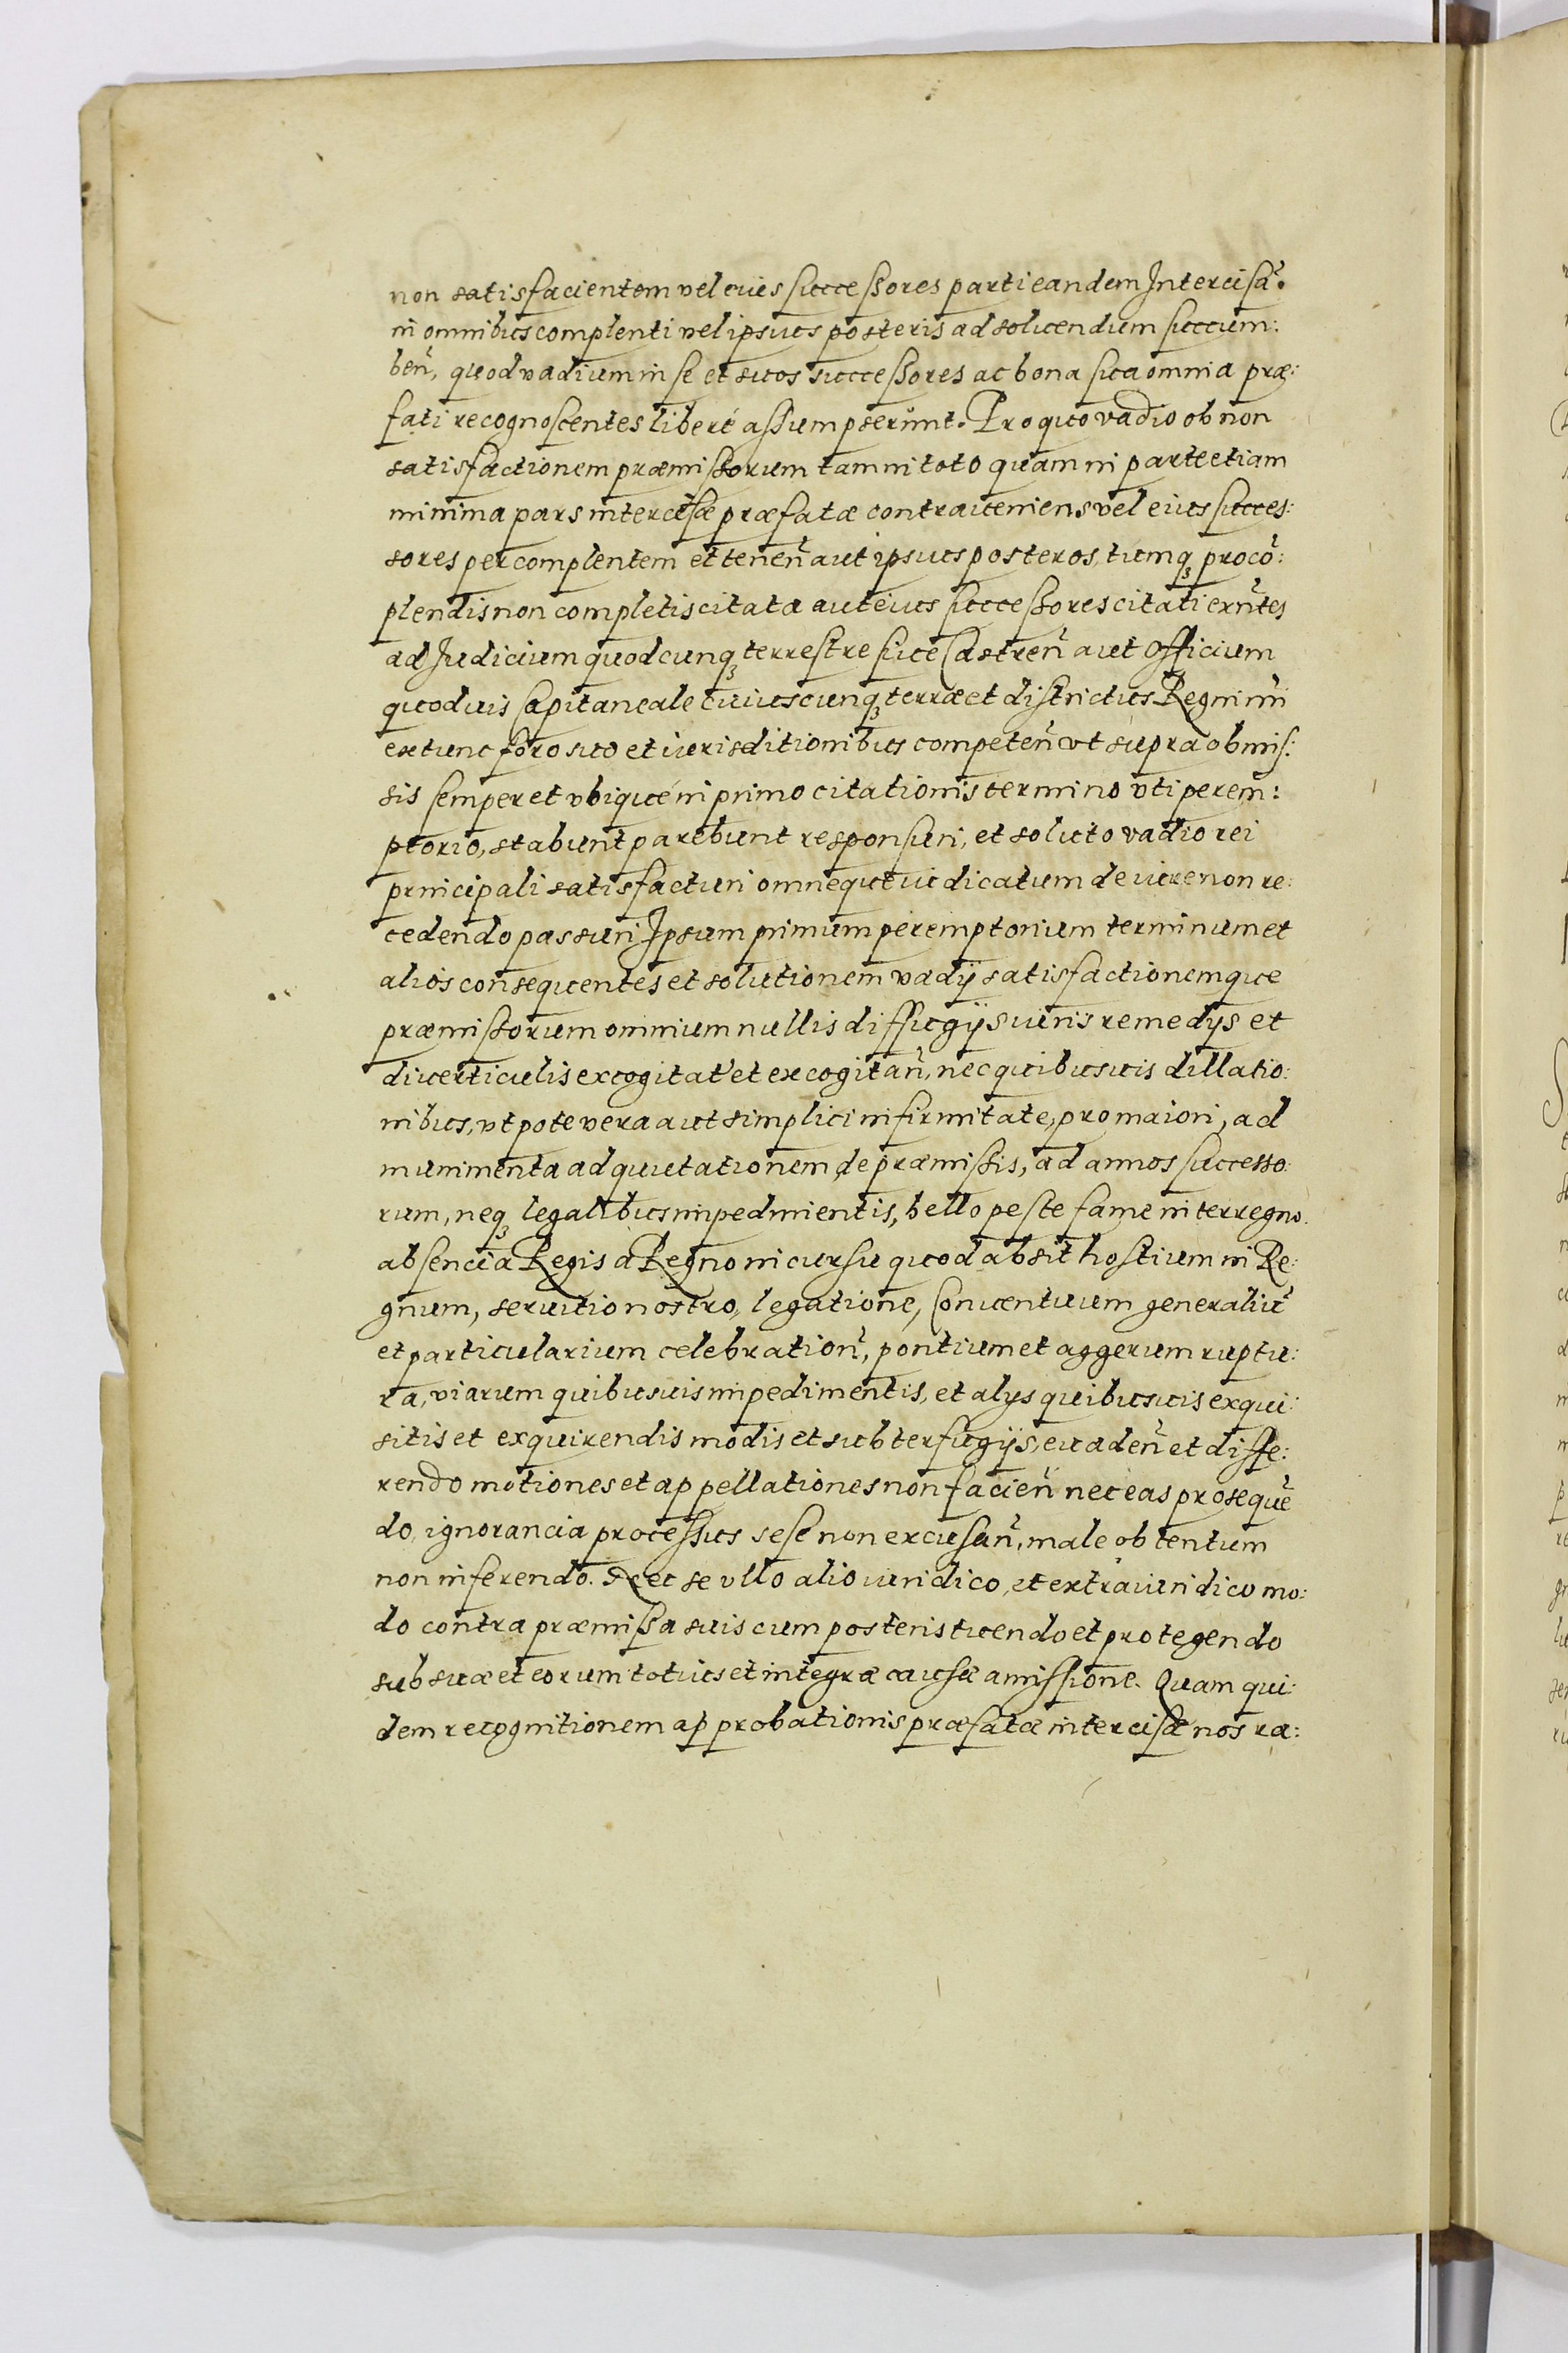 non satisfacientem vel eius successores parti eandem Intercisã.
in omnibus complenti vel ipsius posteris ad soluendum succum:
beñ, quod vadium in se et suos successores ac bona sua omnia præ:
fati recognoscentes liberé assumpserunt. Pro quo vadio ob non
satisfactionem præmissorum tam in toto quam in parte etiam
minima pars intercisæ præfatæ contraueniens vel eius succes:
sores per complentem et teneñ aut ipsius posteros, tumq₃ pro cõ:
plendis non completis citata aut eius successores citati exñtes
ad Judicium quodcunq₃ terrestre siue Castreñ aut Officium
quoduis Capitaneale cuiuscunq₃ terræ et districtus Regni nri
extunc foro suo et iurisditionibus competeñ vt supra obmis:
sis semper et vbique in primo citationis termino vti perem:
ptorio, stabunt parebunt responsuri, et soluto vadio rei
principali satisfacturi omnequé iudicatum de iure non re:
cedendo passuri Ipsum primum peremptorium terminum et
alios consequentes et solutionem vadij satisfactionemque
præmissorum omnium nullis diffugijs iuris remedijs et
diuerticulis excogitat̃ et excogitañ, nec quibusuis dillatio:
nibus, vt pote vera aut simplici infirmitate, pro maiori, ad
munimenta ad quietationem de præmissis, ad annos successo:
rum, neq₃ legalibus impedimentis, bello peste fame interregno
absencia Regis a Regno incursu quod absit hostium in Re:
gnum, seruitio nostro, legatione, Conuentuum generaliũ
et particularium celebratioñ, pontium et aggerum ruptu:
ra, viarum quibusuis impedimentis, et alijs quibusuis exqui:
sitis et exquirendis modis et subterfugijs, euadeñ et diffe:
rendo motiones et appellationes non facieñ nec eas prosequẽ
do, ignorancia processus sese non excusañ, male obtentum
non inferendo. Nec se vllo alio iuridico, et extraiuridico mo:
do contra præmissa suis cum posteris tuendo et protegendo
sub suæ et eorum totius et integræ causæ amissione. Quam qui:
dem recognitionem approbationis præfatæ intercisæ nos ra: